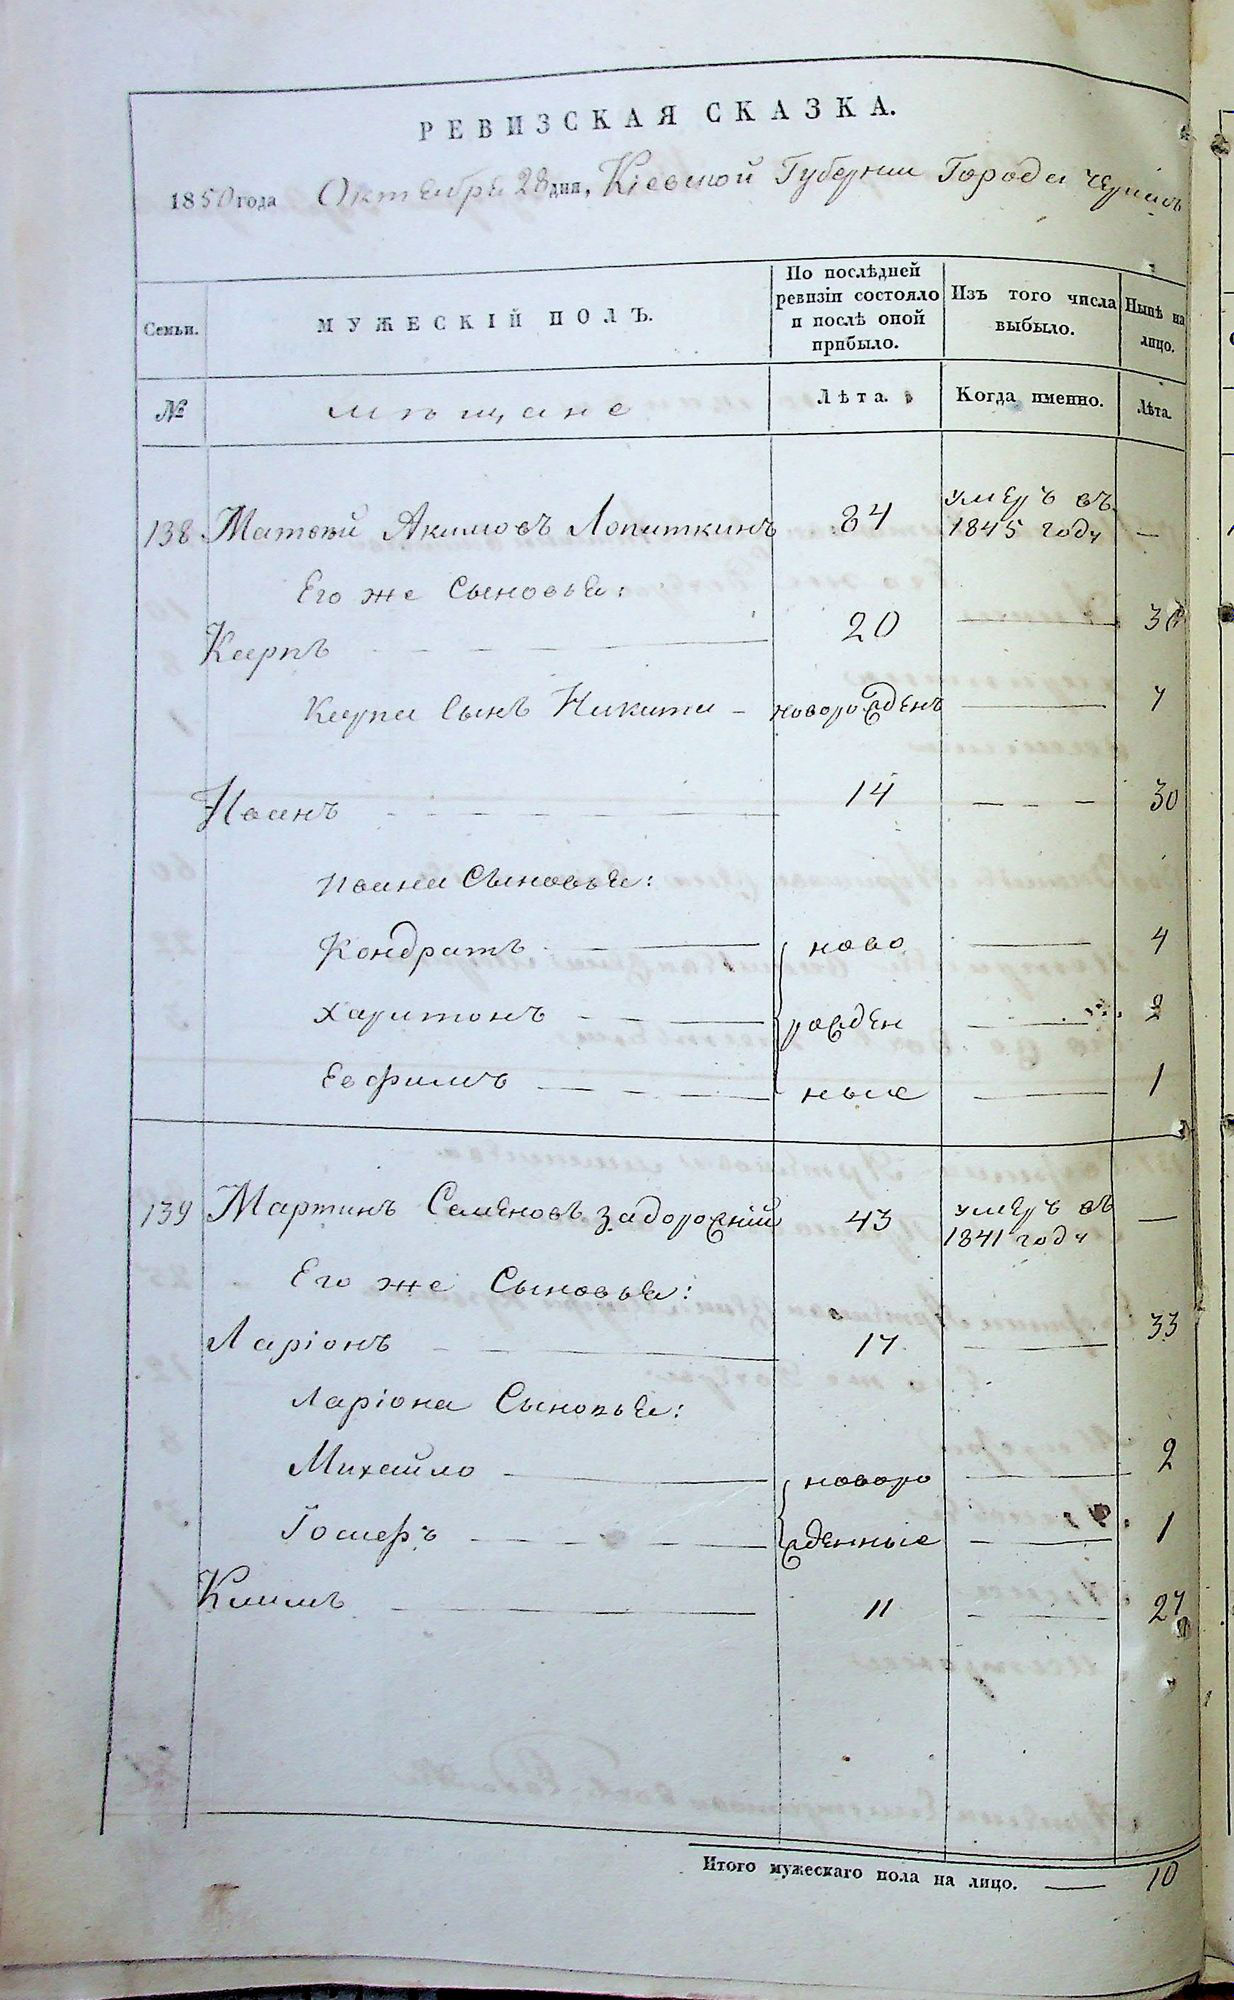 РЕВИЗСКАЯ СКАЗКА.
1850 года Октября 28 дня, Кіевской Губерніи Города
Семьи. МУЖЕСКІЙ ПОЛЪ. По послѣдней ревизіи состояло и послѣ оной прибыло. Изъ того числа выбыло. Нынѣ на лицо.
№ мѣщане Лѣта. Когда именно. Лѣта.
138 Матвѣй Акимовъ Лопаткинъ 84 умеръ въ 1845 году —
Его же Сыновья:
Карпъ 20 — 36
Карпа Сынъ Никита – новорожденъ — 7
Иванъ 14 — 30
Ивана Сыновья:
Кондратъ — ново — 4
Харитонъ — рожден — 2
Евфимъ — ные — 1
139 Мартинъ Семеновъ Задорожній 43 умеръ въ 1841 году —
Его же Сыновья:
Ларіонъ — 17 — 33
Ларіона Сыновья:
Михайло — новоро — 2
Іосифъ — жденные — 1
Климъ — 11 — 27
Итого мужескаго пола на лицо. — 10